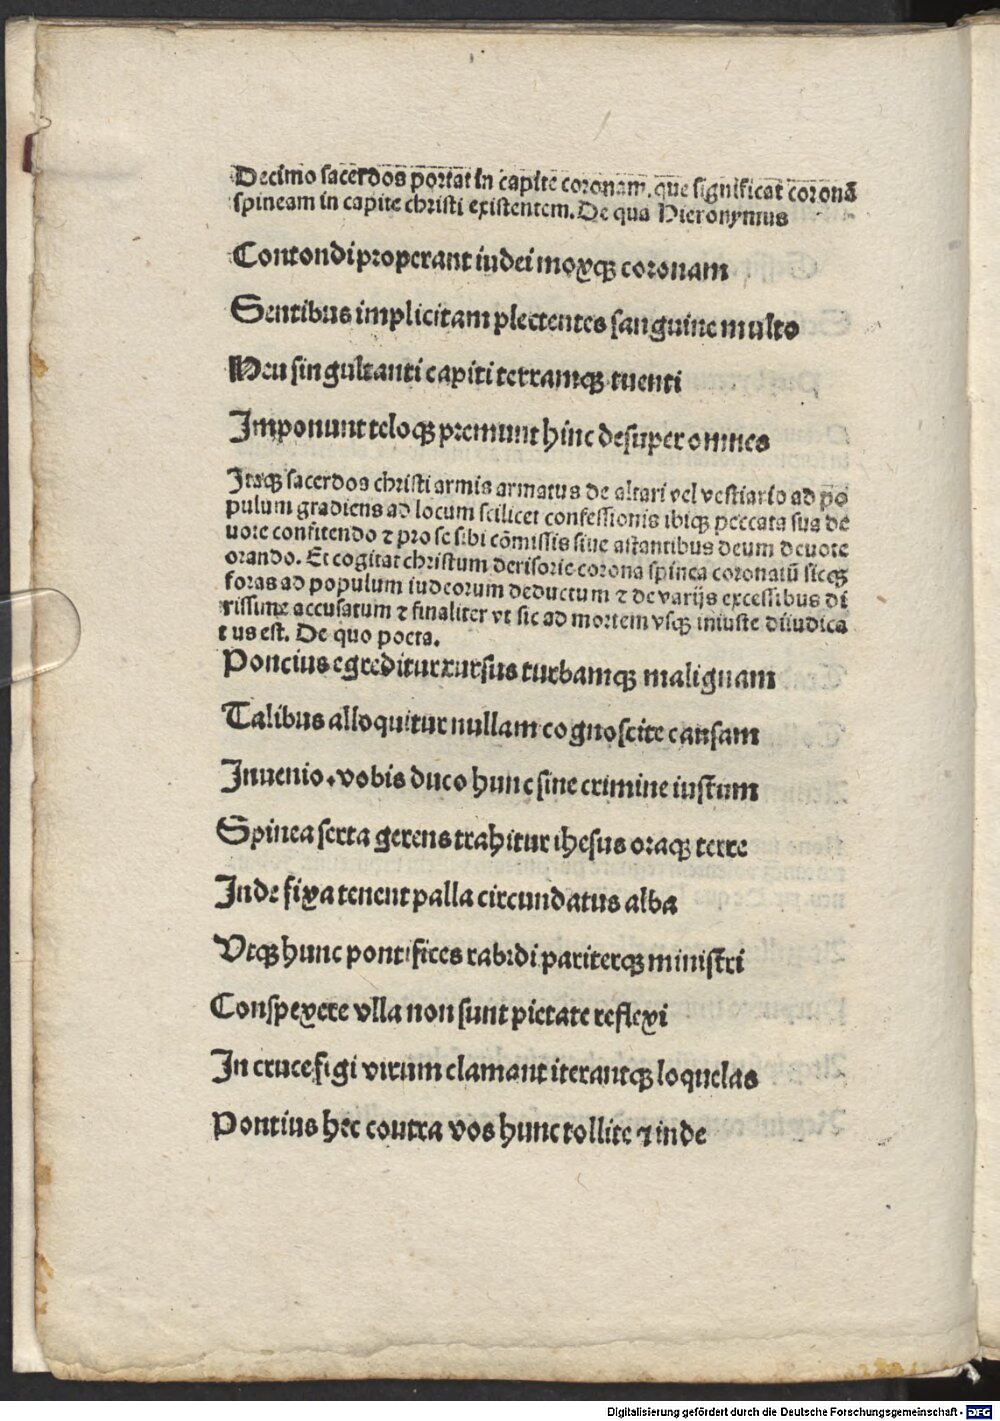 Decimo sacerdos portat in capite coronam. que significat coronā
spineam in capite christi existentem. De qua Hieronymus
Contondi properant iudei moxqꝫ coronam
Sentibus implicitam plectentes sanguine multo
Heu singultanti capiti terramqꝫ tuenti
Imponunt teloqꝫ premunt hinc desuper omnes
Itaqꝫ sacerdos christi armis armatus de altari vel vestiario ad po
pulum gradiens ad locum scilicet confessionis ibiqꝫ peccata sua de
uote confitendo ⁊ pro se sibi cōmissis siue astantibus deum deuote
orando. Et cogitat christum derisorie corona spinea coronatū sicqꝫ
foras ad populum iudeorum deductum ⁊ de varijs excessibus di
rissime accusatum ⁊ finaliter vt sic ad mortem vsqꝫ iniuste diiudica
tus est. De quo poeta.
Poncius egreditur rursus turbamqꝫ malignam
Talibus alloquitur nullam cognoscite causam
Inuenio. vobis duco hunc sine crimine iustum
Spinea serta gerens trahitur ihesus oraqꝫ terre
Inde fixa tenent palla circundatus alba
Vtqꝫ hunc pontifices rabidi pariterqꝫ ministri
Conspexere vlla non sunt pietate reflexi
In cruce figi virum clamant iterantqꝫ loquelas
Pontius hec contra vos hunc tollite ⁊ inde
Digitalisierung gefördert durch die Deutsche Forschungsgemeinschaft - DFG